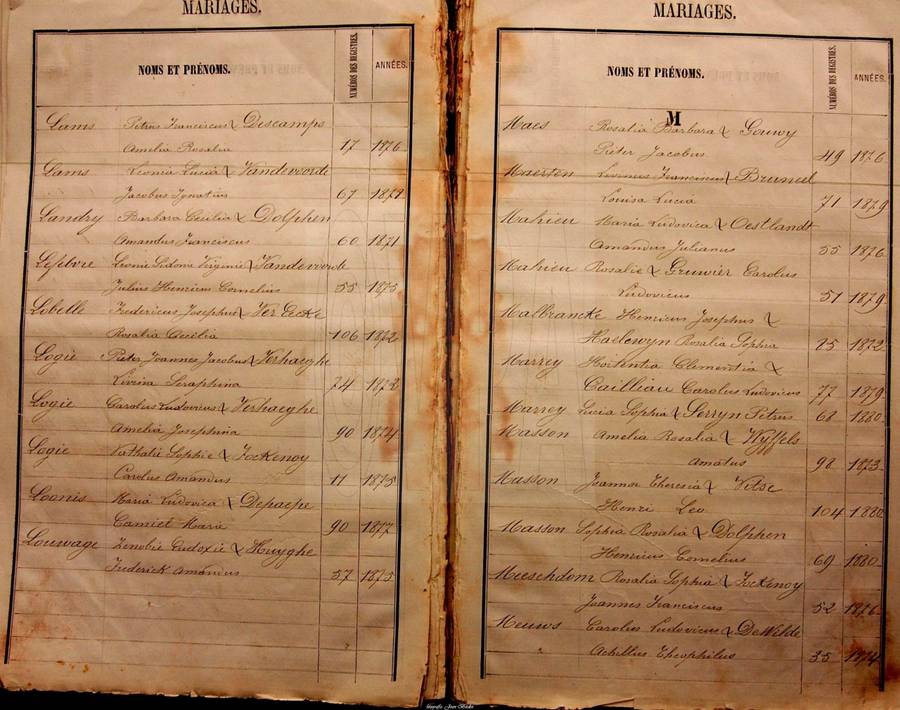 MARIAGES.
NOMS ET PRÉNOMS. NUMÉROS DES REGISTRES. ANNÉES.
Lams Petrus Franciscus & Descamps
Amelia Rosalia 17 1876
Lams Leonia Lucia & Vandevoorde
Jacobus Ignatius 67 1879
Landry Barbara Cecilia & Dolphen
Amandus Franciscus 60 1871
Lefebvre Leonie Sidonie Virginie & Vandevoorde
Julius Henricus Cornelius 55 1875
Lobelle Fredericus Josephus & Ver Eecke
Rosalia Cecilia 106 1872
Logie Pieter Joannes Jacobus & Verhaeghe
Livina Seraphina 74 1872
Logie Carolus Ludovicus & Verhaeghe
Amelia Josephina 90 1874
Logie Nathalie Sophie & Fockenoy
Carolus Amandus 11 1875
Loonis Maria Ludovica & Depaepe
Camiel Marie 90 1877
Louwage Zenobie Eudoxie & Huyghe
Frederick Amandus 57 1875
MARIAGES.
NOMS ET PRÉNOMS. NUMÉROS DES REGISTRES. ANNÉES.
M
Maes Rosalia Barbara & Gouwy
Pieter Jacobus 49 1876
Maerten Livinus Franciscus & Bruneel
Louisa Lucia 71 1879
Mahieu Maria Ludovica & Oestlandt
Amandus Julianus 55 1876
Mahieu Rosalie & Gruwier Carolus
Ludovicus 51 1879
Malbrancke Henricus Josephus &
Haelewyn Rosalia Sophia 75 1872
Marrey Hortentia Clementia &
Cailliau Carolus Ludovicus 77 1879
Marrey Lucia Sophia & Serryn Petrus 68 1880
Masson Amelia Rosalia & Wyffels
Amatus 98 1873
Masson Joanna Theresia & Vitse
Henri Leo 104 1880
Masson Sophia Rosalia & Dolphen
Henricus Cornelius 69 1880
Meeschdom Rosalia Sophia & Fockenoy
Joannes Franciscus 52 1876
Meuws Carolus Ludovicus & De Wilde
Achillus Theophilus 35 1874